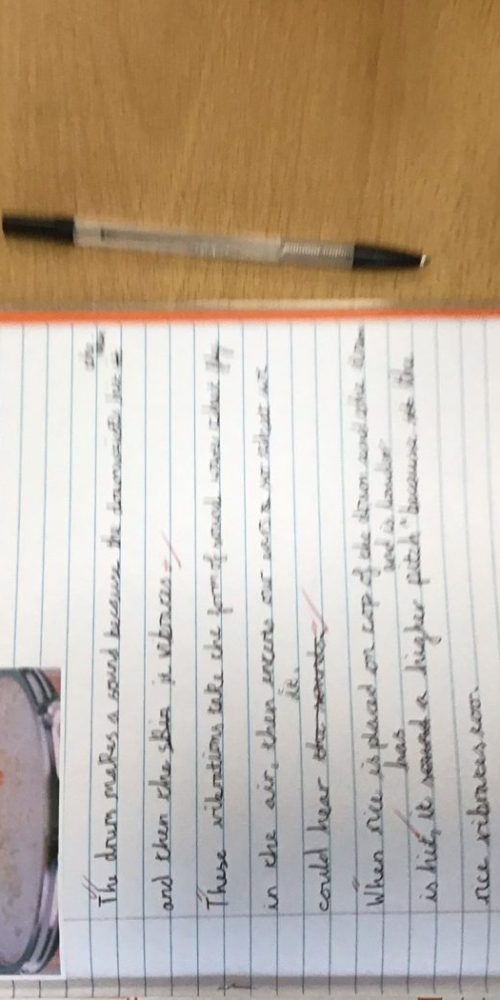 The drum makes a sound because the drumstick hit the
and then the skin it vibrates.
These vibrations take the form of sound waves that fly
in the air, then enters our ears so that we
could hear it.
When rice is placed on top of the drum and the drum
is hit, it has a higher pitch and is louder because the
rice vibrates too.